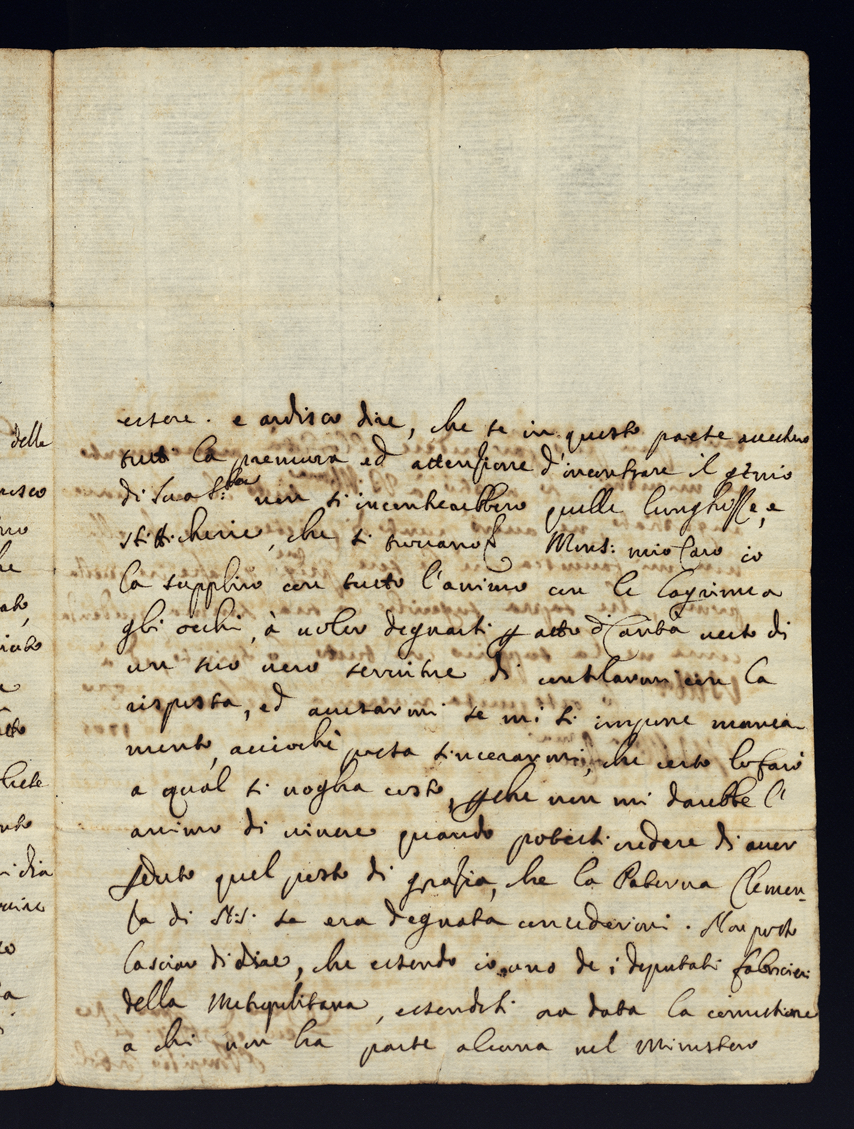 delle
essere. e ardisco dire, che se in questo paese avessero
tutti la premura ed attenzione d'incontrare il genio
di Sua S.tà non si incontrarebbero quelle lunghesse, e
stitticherie, che si trovano. Mons: mio Caro io
la supplico con tutto l'animo con le lagrime a
gli occhi, à voler degnarsi p atto di Carità verso di
un suo vero servitore di consolarmi con la
risposta, ed avisarmi se mi si impone manca
mento, acciochè possa sincerarmi, che certo lo farò
a qual si voglia costo, pche non mi darebbe l'
animo di vivere quando potessi credere di aver
pduto quel posto di grazia, che la Paterna Clemen-
za di N.S. se era degnata concedermi. Non posso
lasciar di dire, che essendo io uno de i deputati fabricieri
della Metropolitana, essendosi ora data la comissione
a chi non ha parte alcuna nel Ministero